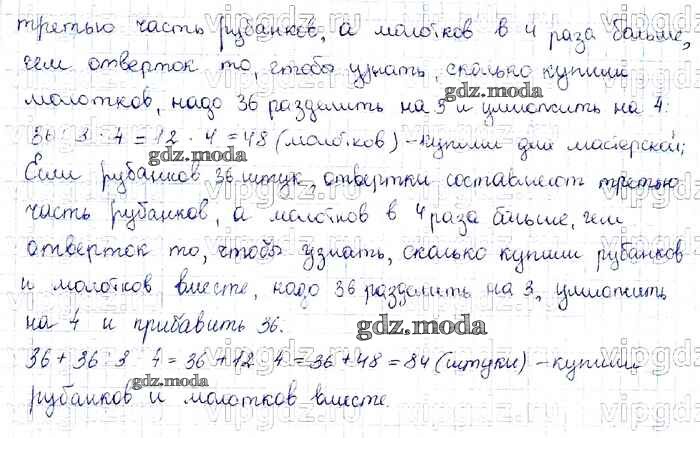 третью часть рубанков, а молотков в 4 раза больше,
чем отверток то, чтобы узнать, сколько купили
молотков, надо 36 разделить на 3 и умножить на 4:
36 : 3 · 4 = 12 · 4 = 48 (молотков) – купили для мастерской;
Если рубанков 36 штук, отвертки составляют третью
часть рубанков, а молотков в 4 раза больше, чем
отверток то, чтобы узнать, сколько купили рубанков
и молотков вместе, надо 36 разделить на 3, умножить
на 4 и прибавить 36.
36 + 36 : 3 · 4 = 36 + 12 · 4 = 36 + 48 = 84 (штуки) – купили
рубанков и молотков вместе.
gdz.moda
gdz.moda
gdz.moda
gdz.moda
gdz.moda
vipgdz.ru